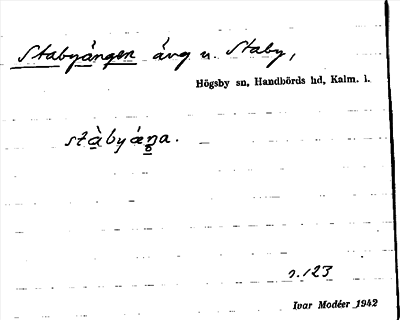 Stabyängen äng u. Staby,
Högsby sn, Handbörds hd, Kalm. l.
stàbyáŋa.
s. 123
Ivar Modéer 1942